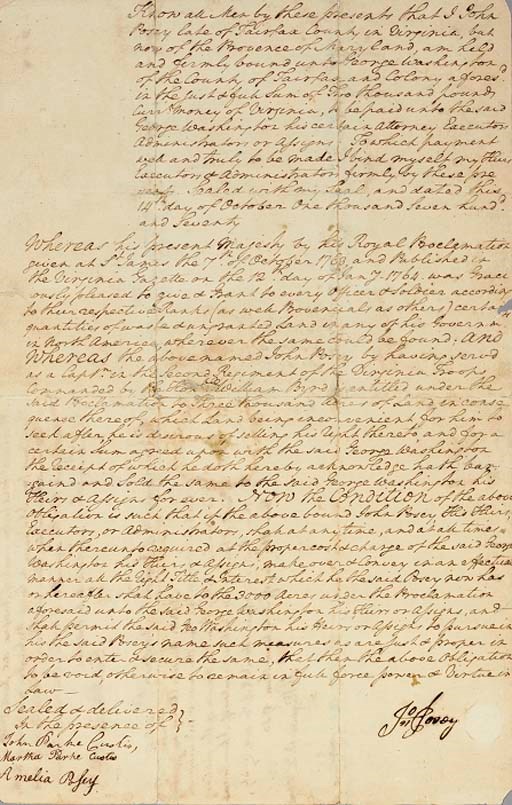 Know all Men by these presents that I John
Posey late of Fairfax County in Virginia, but
now of the Provence of Maryland, am held
and firmly bound unto George Washington
of the County of Fairfax and Colony afores.d
in the Just & full Sum of Two thousand pounds
Curr.t money of Virginia, to be paid unto the said
George Washington his certain Attorney Executors
Administrators or Assigns. To which payment
well and truly to be made I bind myself my Heirs
Executors & Administrators firmly by these pre
sents. Sealed with my Seal, and dated this
14th day of October One thousand Seven hund.d
and Seventy
Whereas his present Majesty by his Royal Proclamation
given at St. James the 7th of October 1763, and Published in
the Virginia Gazette on the 12th day of Jan.y 1764 was Graci
ously pleased to give & Grant to every Officer & Soldier according
to their respective Ranks (as well Provencials as others) certain
quantities of waste & ungranted Land in any of his Governm.ts
in North America, wherever the same could be found: And
Whereas the above named John Posey by having serv'd
as a Capt.n in the Second Regiment of the Virginia Troops
Commanded by the William Byrd, is entitled under the
said Proclamation to three thousand Acres of Land in conse
quence thereof, which Land being inconvenient for him to
seek after, he is desirous of selling his Right thereto, and for a
certain Sum agreed upon with the said George Washington
the receipt of which he doth hereby acknowledge hath bar
gaind and Sold the same to the said George Washington his
Heirs & Assigns for ever. Now the Condition of the above
Obligation is such that if the above bound John Posey His Heirs,
Executors, or Administrators, shall at any time, and at all times
when thereunto required at the proper cost & charge of the said George
Washington his Heirs & Assigns, make over & convey in an effectual
manner all the Right Title & Interest which he the said Posey now has
or hereafter shall have to the 3000 Acres under the Proclamation
aforesaid unto the said George Washington his Heirs or Assigns, and
shall permit the said Geo Washington his Heirs or Assigns to pursue in
his the said Posey's name such measures as are just & proper in
order to enter & secure the same, that then the above Obligation
to be void otherwise to remain in full force power & Virtue in
Law
Sealed & delivered
In the presence of
John Parke Custis,
Martha Parke Custis
Amelia Posey
Jno Posey